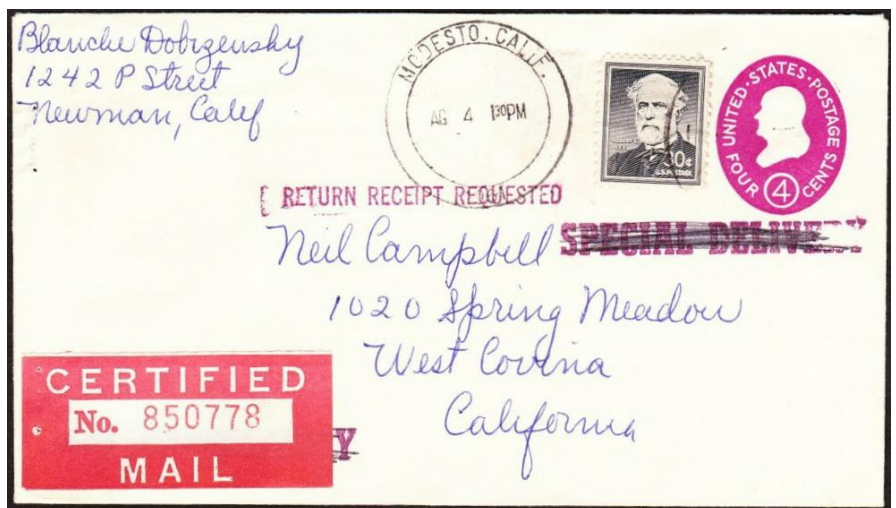 Blanche Dobrzensky
1242 P Street
Newman, Calif
MODESTO, CALIF.
AG 4 130PM
ROBERT E. LEE
30¢
U.S. POSTAGE
UNITED·STATES·POSTAGE
FOUR 4 CENTS
RETURN RECEIPT REQUESTED
SPECIAL DELIVERY
Neil Campbell
1020 Spring Meadow
West Covina
California
CERTIFIED
No. 850778
MAIL
Y